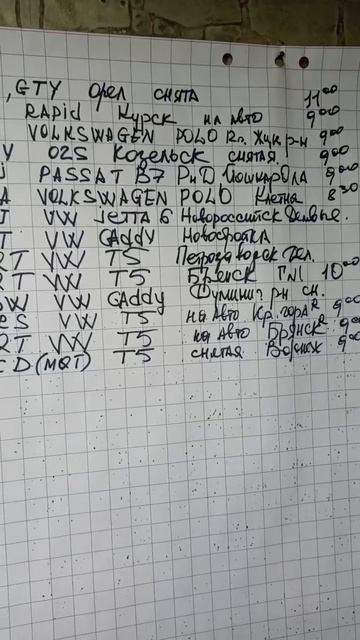 , GTY Орел снята 11⁰⁰
Rapid Курск на авто 9⁰⁰
VOLKSWAGEN POLO 9⁰⁰
V 02S Козельск снятая 9⁰⁰
PASSAT B7 РнД Йошкар Ола 9⁰⁰
A VOLKSWAGEN POLO Клетня 8³⁰
J VW Jetta 6 Новороссийск
T VW CAddy
RT VW T5 Петрозаводск
RT VW T5 10⁰⁰
VW CAddy рн сн.
CS VW T5 на Авто Кр. гора 9⁰⁰
RT VW T5 на Авто Брянск 9⁰⁰
CD (MQT) T5 снятая 9⁰⁰